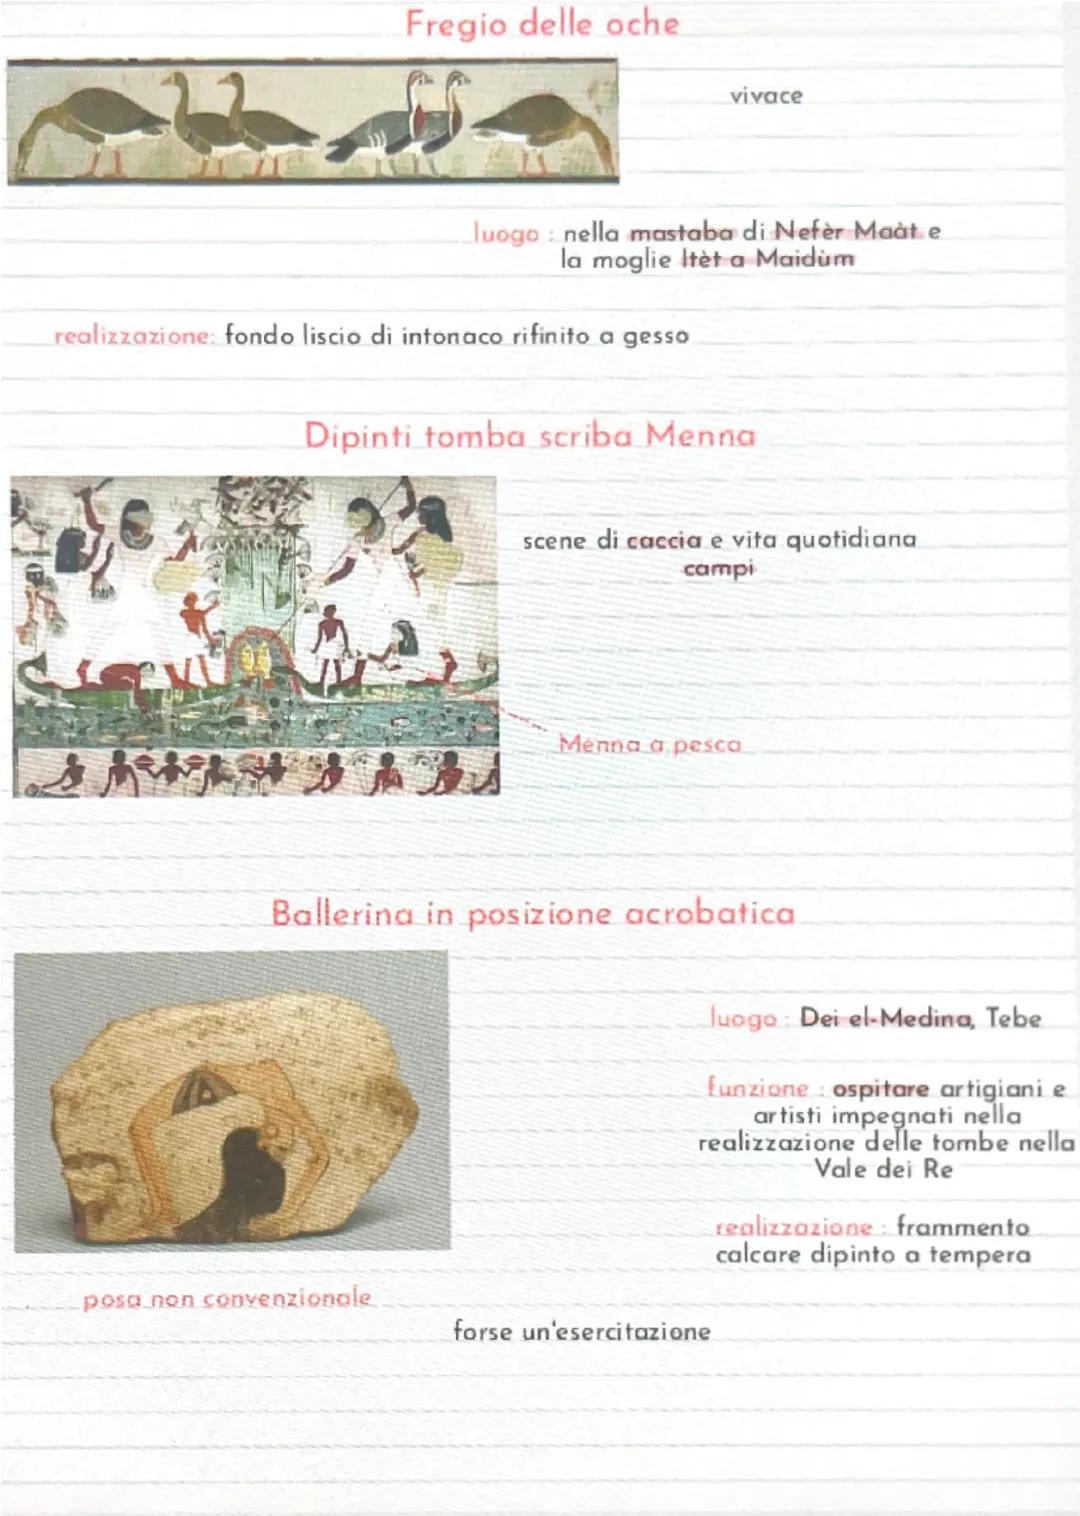 Fregio delle oche
vivace
luogo : nella mastaba di Nefèr Maàt e
la moglie Itèt a Maidùm
realizzazione: fondo liscio di intonaco rifinito a gesso
Dipinti tomba scriba Menna
scene di caccia e vita quotidiana
campi
Menna a pesca
Ballerina in posizione acrobatica
luogo : Dei el-Medina, Tebe
funzione : ospitare artigiani e
artisti impegnati nella
realizzazione delle tombe nella
Vale dei Re
realizzazione : frammento
calcare dipinto a tempera
posa non convenzionale
forse un'esercitazione